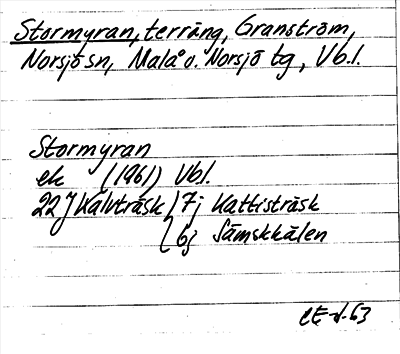 Stormyran, terräng, Granström,
Norsjö sn, Malå o. Norsjö tg, Vb.l.
Stormyran
ek (1961) Vbl.
22J Kalvträsk 7j Kattisträsk
6j Sämskkälen